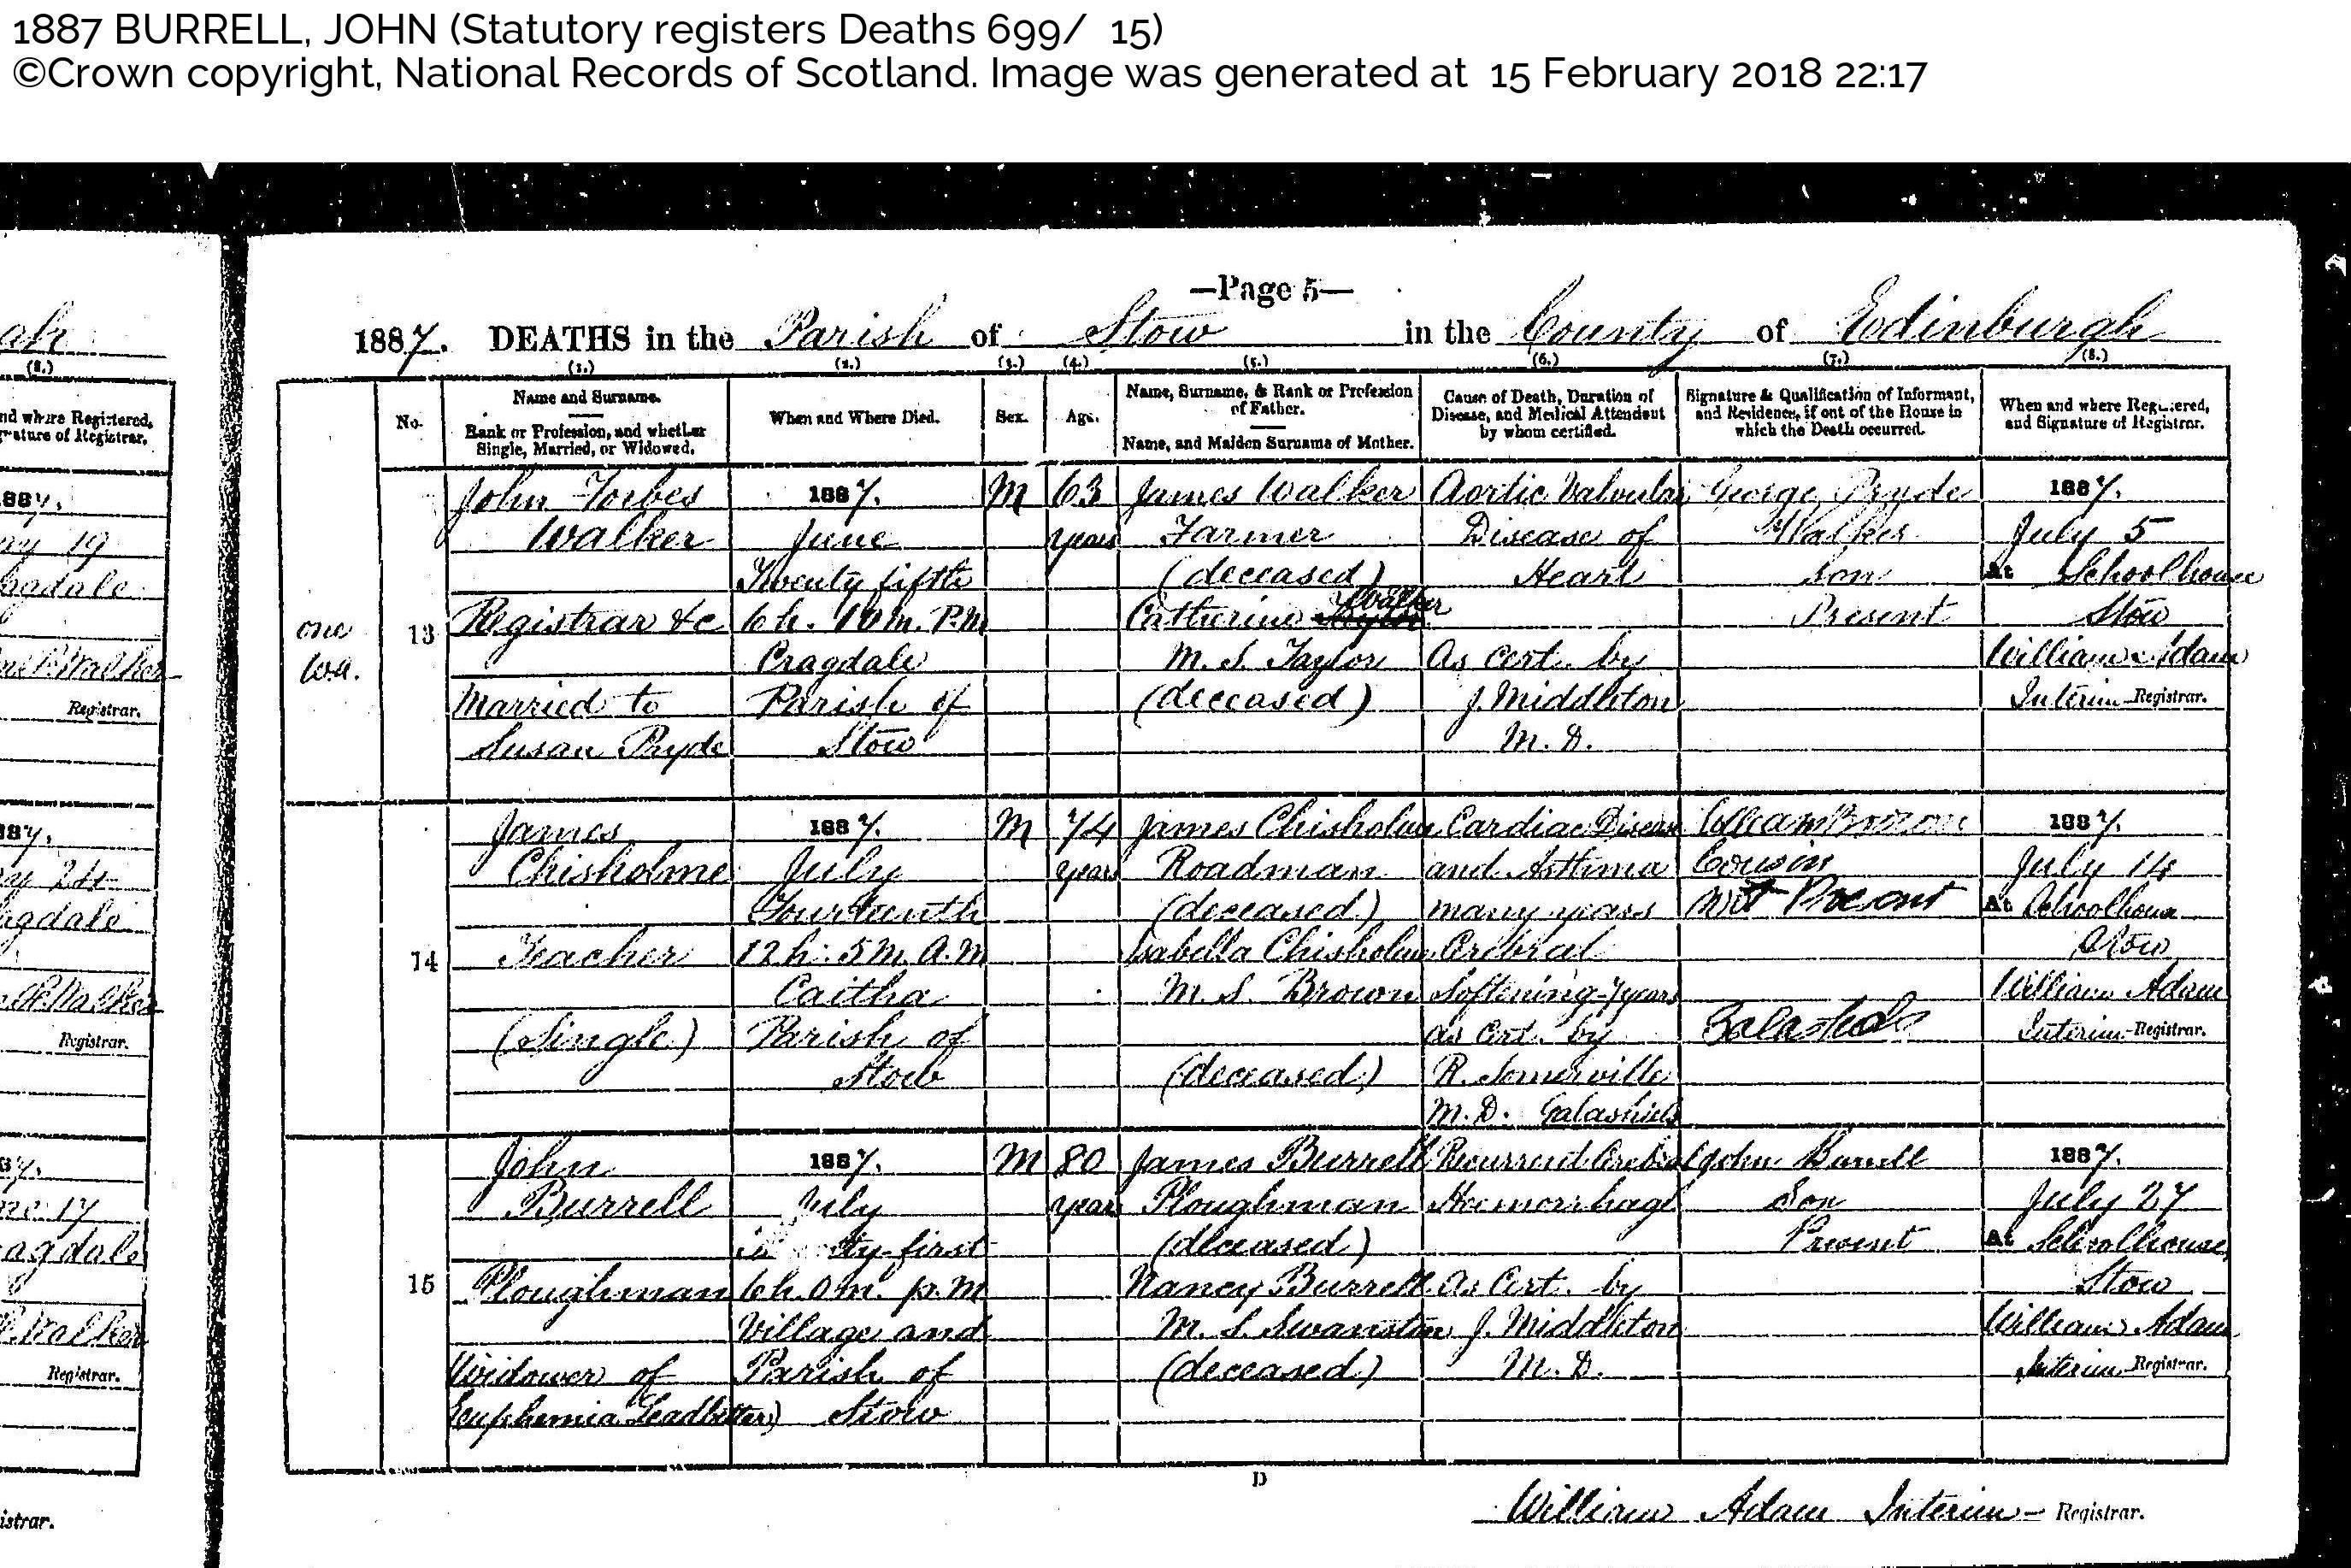 1887 BURRELL, JOHN (Statutory registers Deaths 699/ 15)
©Crown copyright, National Records of Scotland. Image was generated at 15 February 2018 22:17
—Page 5—
1887. DEATHS in the Parish of Stow in the County of Edinburgh
(1.) (2.) (3.) (4.) (5.) (6.) (7.) (8.)
No.
Name and Surname.
Rank or Profession, and whether
Single, Married, or Widowed.
When and Where Died.
Sex.
Age.
Name, Surname, & Rank or Profession
of Father.
Name, and Maiden Surname of Mother.
Cause of Death, Duration of
Disease, and Medical Attendant
by whom certified.
Signature & Qualification of Informant,
and Residence, if out of the House in
which the Death occurred.
When and where Registered,
and Signature of Registrar.
one
13
John Forbes
Walker
Registrar &c
Married to
Susan Pryde
1887.
June
Twenty fifth
6 h. 10 m. P.M
Cragdale
Parish of
Stow
M
63
years
James Walker
Farmer
(deceased)
Walker
Catherine
M. S. Taylor
(deceased)
Aortic Valvular
Disease of
Heart
As cert. by
J. Middleton
M. D.
George Pryde
Walker
Son
Present
1887.
July 5
At Schoolhouse
Stow
William Adam
Interim Registrar.
14
James
Chisholme
Teacher
(Single)
1887.
July
Fourteenth
12 h. 5 m. A.M
Caitha
Parish of
Stow
M
74
years
James Chisholme
Roadman
(deceased)
Isabella Chisholme
M. S. Brown
(deceased)
Cardiac Disease
and Asthma
many years
Cerebral
Softening 7 years
as cert. by
R. Somerville
M. D. Galashiels
Cousin
Not Present
Galashiels
1887.
July 14
At Schoolhouse
Stow
William Adam
Interim Registrar.
15
John
Burrell
Ploughman
Widower of
Euphemia Leadbetter)
1887.
July
first
6 h. 0 m. p.m
Village and
Parish of
Stow
M
80
years
James Burrell
Ploughman
(deceased)
Nancy Burrell
M. S. Swanston
(deceased)
Recurred Cerebral
Haemorrhage
As Cert. by
J. Middleton
M. D.
John Burrell
Son
Present
1887.
July 27
At Schoolhouse,
Stow
William Adam
Interim Registrar.
D
William Adam Interim Registrar.